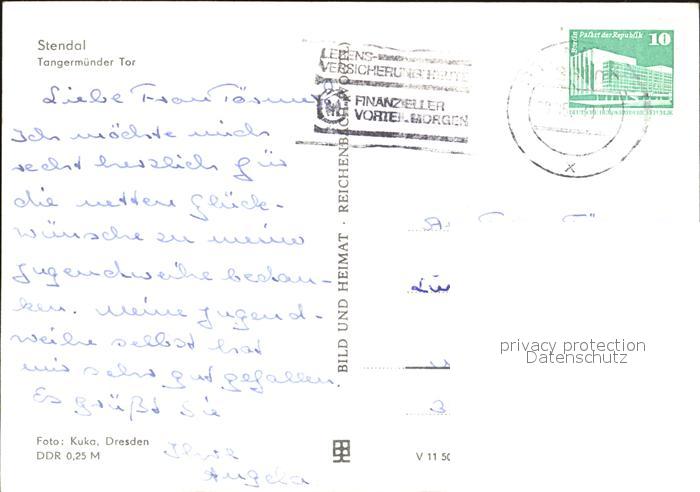 Stendal
Tangermünder Tor
Liebe Frau
Ich möchte mich
recht herzlich für
die netten Glück-
wünsche zu meine
Jugendweihe bedan-
ken. Meine Jugend-
weihe selbst hat
mir sehr gut gefallen.
Es grüßt Sie
Ihre
Angela
Foto: Kuka, Dresden
DDR 0,25 M
BILD UND HEIMAT · REICHENBACH (VOGTL)
V 11 50
LEBENS-
VERSICHERUNG HEUTE
FINANZIELLER
VORTEIL MORGEN
Berlin Palast der Republik 10
DEUTSCHE DEMOKRATISCHE REPUBLIK
x
privacy protection
Datenschutz